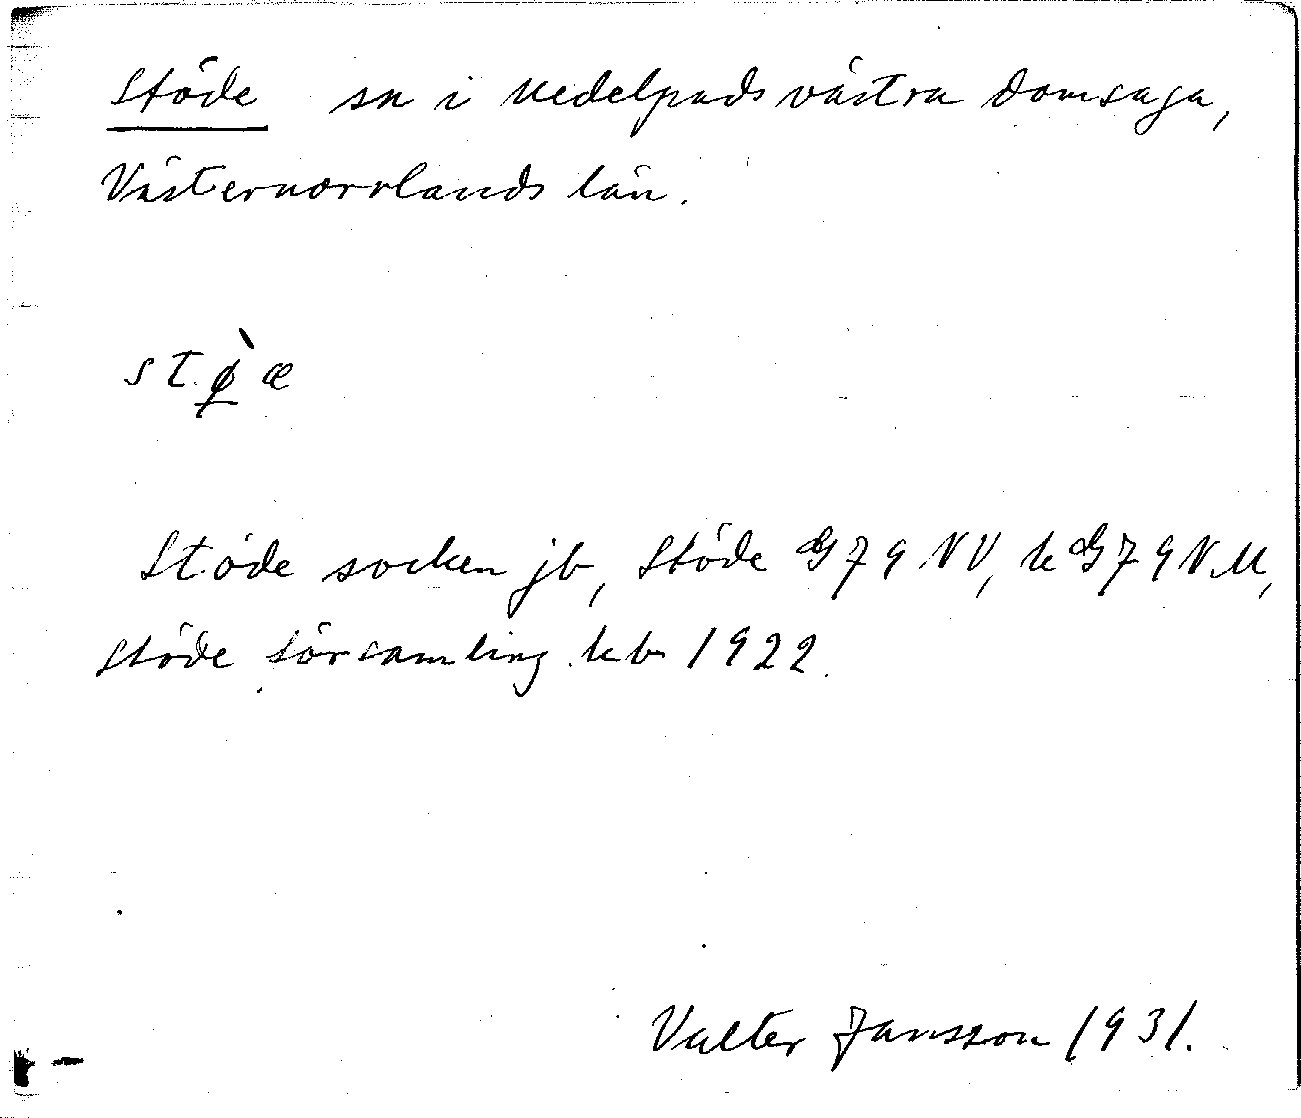 Stöde sn i Medelpads västra domsaga,
Västernorrlands län.
stø̀æ
Stöde socken jb, Stöde GS 79 NV, k GS 79 NM,
Stöde församling kb 1922.
Valter Jansson 1931.